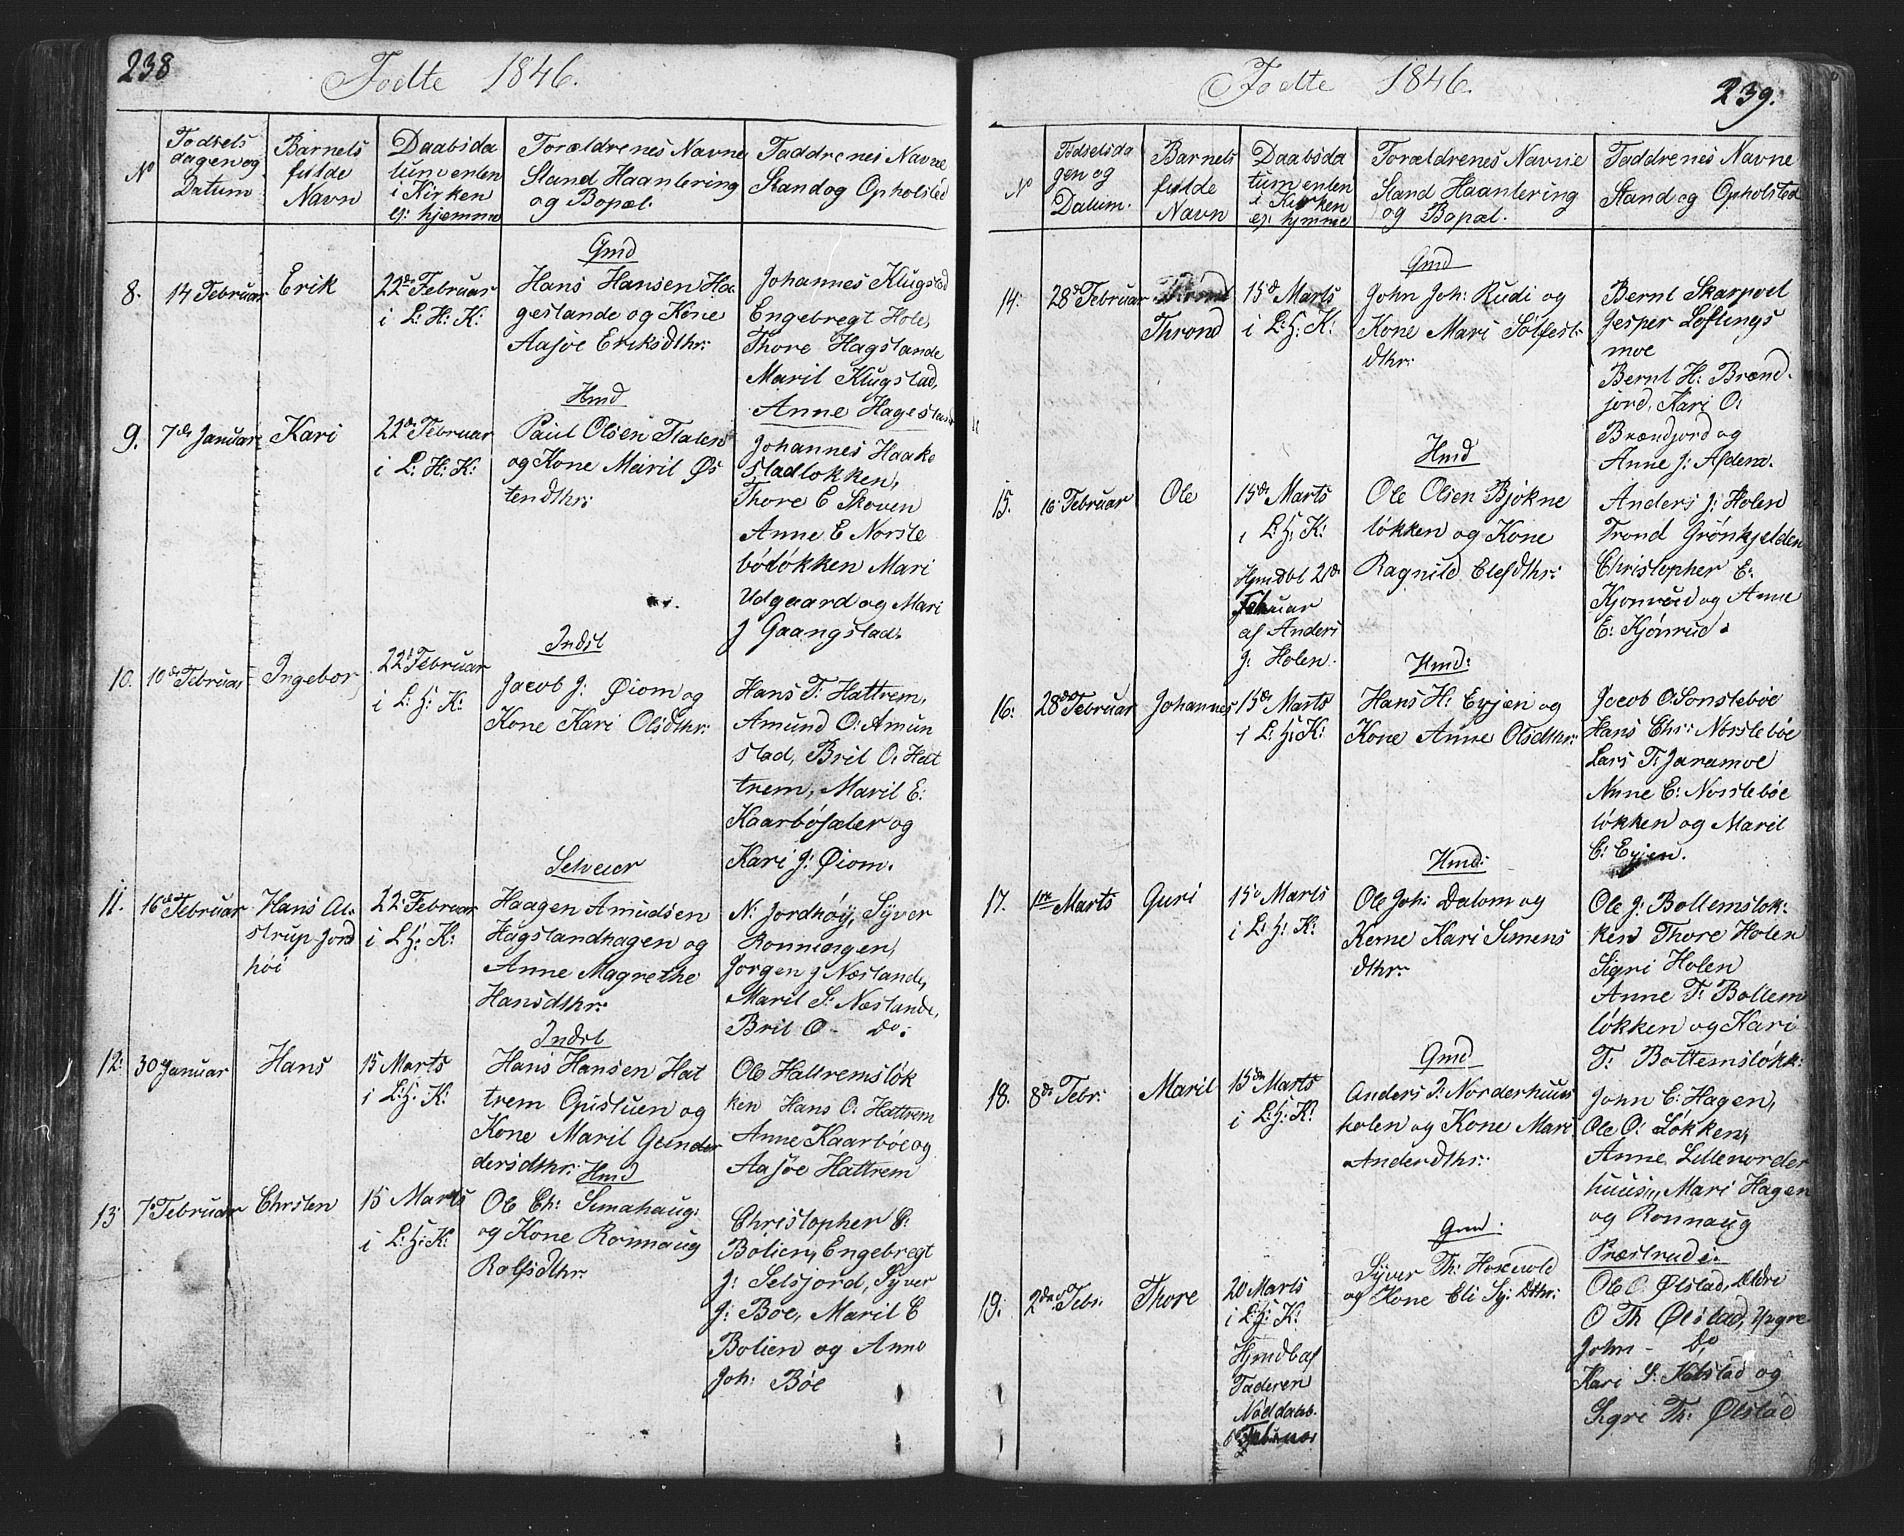 238
Fødte 1846.
No
Fødsels
dagen og
Datum
Barnets
fulde
Navn
Daabsda
tum enten
i Kirken
el: hjemme
Forældrenes Navne
Stand Haantering
og Bopæl.
Faddrenes Navne
Stand og Opholsted
8.
14 Februar
Erik
22de Februar
i L: H: K:
Gmd
Hans Hansen Ha
geslande og Kone
Aasøe Eriksdthr:
Johannes Klugstad
Engebregt Hole,
Thore Hagslande
Marit Klugstad,
Anne Hageslande
9.
7de Januar
Kari
22de Februar
i L: H: K:
Hmd
Paul Olsen Flaten
og Kone Marit Øs
tendthr:
Johannes Haake
stadløkken,
Thore E Skoven
Anne E Norste
bøløkken Mari
Udgaard og Mari
J Gaangstad.
10.
10de Februar
Ingebor
22d Februar
i L: H: K:
Indst
Jacob J: Øiom og
Kone Kari Olsdthr:
Hans T: Hattrem,
Amund O: Amun
stad, Brit O: Hat
trem, Marit E:
Kaarbøsæter og
Kari J: Øiom.
11.
16de Februar
Hans Al
strup Jord
høi
22: Februar
i L H: K:
Selveier
Haagen Amudsen
Hagslandhagen og
Anne Magrethe
Hansdthr:
N: Jordhøy, Syver
Ronningen,
Jorgen J Næslande,
Marit S: Næslande,
Brit O - Do:
12:
30 Januar
Hans
15 Marts
i L: H: K:
Indst
Hans Hansen Hat
trem Opistuen og
Kone Marit Gunder
dersdthr:
Ole Hattremsløk
ken Hans O: Hattrem
Anne Kaarbøe og
Aasøe Hattrem
13
7: Februar
Chrsten
15 Marts
i L: H: K:
Hmd
Ole Ch: Simahaug:
og Kone Ronnaug
Rolfsdthr:
Christopher C:
Bolien, Engebregt
J: Selsjord, Syver
J: Boe, Marit C
Bolien og Anne
Joh: Bøe
239.
Fødte 1846.
No
Fødselsda
gen og
Datum.
Barnets
fulde
Navn
Daabsda
tum enten
i Kirken
el: hjemme
Forældrenes Navne
Stand Haantering
og Bopæl.
Faddrenes Navne
Stand og Opholsted
14:
28de Februar
Thrond
15d Marts
i L: H: K:
Gmd
John Joh: Rudi og
Kone Mari Solfest
dthr:
Bernt Skarpvot
Jesper Løftings
moe
Bernt H: Brænd
jord, Kari O:
Brændjord og
Anne J: Afdem.
15.
16: Februar
Ole
15de Marts
i L: H: K:
Hjmdbt 21de
Februar
af Anders
J: Holen.
Hmd
Ole Olsen Bjøkne
løkken og Kone
Ragnild Elefdthr:
Anders J: Holen
Trond Grønhjelden
Christopher E:
Kjonrud og Anne
E: Kjønrud.
16:
28de Februar
Johannes
15de Marts
i L: H: K:
Hmd:
Hans H: Eyjen og
Kone Anne Olsdthr:
Jacob O: Sonstebøe
Hans Chr: Norstebøe
Lars T: Jaramoe
Anne E: Norstebøe
løkken og Marit
C: Eyjen.
17.
1ste Marts
Guri
15: Marts
i L: H: K:
Hmd:
Ole Joh: Dalom og
Kone Kari Simens
dthr:
Ole J: Bottemsløk:
ken Thore Holen
Sigri Holen
Anne T: Bottem
løkken og Kari
T: Bottemsløkk:
18.
8de Febr:
Marit
15de Marts
i L: H: K:
Gmd
Anders P: Norderhuus
holen og Kone Mari
Anderdthr:
John E: Hagen,
Ole O: Løkken,
Anne Lillenorder
huus, Mari Hagen
og Ronnaug
Præstrude.
19:
2den Febr:
Thore
20 Marts
i L: H: K:
Hjmdb af
Faderen
Nøddaab.
Februar
Gmd.
Syver Th:
og Kone Eli Sy: Dthr:
Ole O Ølstad, Ældre
O Th Ølstad, Yngre
John - Do
Kari S: Kolstad og
Sigri Th: Ølstad